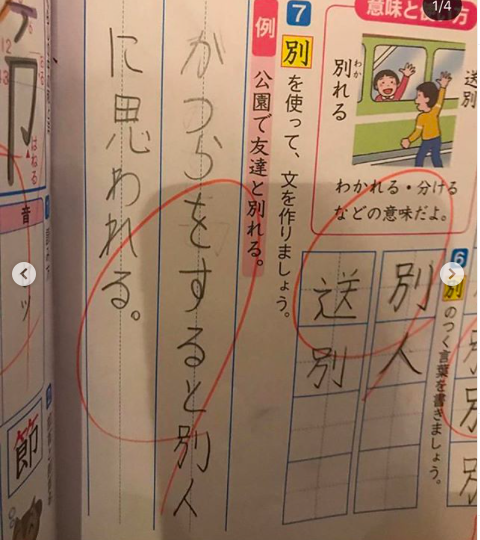 1/4
意味と使い方
送別
別れる
わか
わかれる・分ける
などの意味だよ。
6 別のつく言葉を書きましょう。
別人
送別
7 別を使って、文を作りましょう。
例 公園で友達と別れる。
かつらをすると別人
に思われる。
はねる
音
節